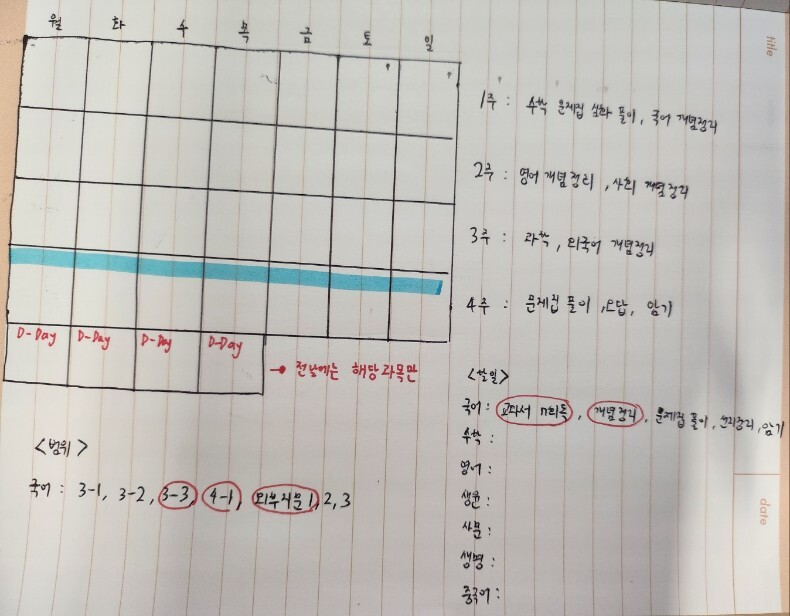 title
월 화 수 목 금 토 일
1주 : 수학 문제집 심화 풀이, 국어 개념정리
2주 : 영어 개념정리, 사회 개념정리
3주 : 과학, 외국어 개념정리
4주 : 문제집 풀이, 오답, 암기
D-Day D-Day D-Day D-Day
→ 전날에는 해당과목만
<할일>
국어 : 교과서 n회독, 개념정리, 문제집 풀이, 암기
수학 :
영어 :
생윤 :
사문 :
생명 :
중국어 :
<범위>
국어 : 3-1, 3-2, 3-3, 4-1, 외부지문 1, 2, 3
date